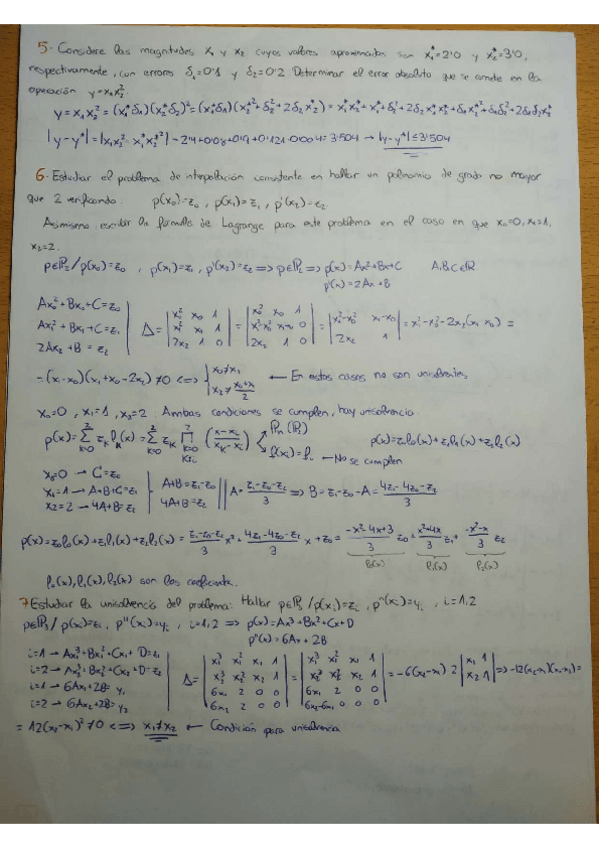 5- Considere las magnitudes x₁ y x₂ cuyos valores aproximados son x₁*=2'0 y x₂*=3'0,
respectivamente, con errores δ₁=0'1 y δ₂=0'2. Determinar el error absoluto que se comete en la
operación y=x₁x₂².
y=x₁x₂²=(x₁*δ₁)(x₂*δ₂)²=(x₁*δ₁)(x₂*²+δ₂²+2δ₂x₂*)=
|y-y*|=|x₁x₂²-x₁*x₂*²| → |y-y*|≤3'504
6- Estudiar el problema de interpolación consistente en hallar un polinomio de grado no mayor
que 2 verificando: p(x₀)=z₀, p(x₁)=z₁, p'(x₂)=z₂
Asimismo escribir la fórmula de Lagrange para este problema en el caso en que x₀=0, x₁=1,
x₂=2.
p∈P₂/p(x₀)=z₀, p(x₁)=z₁, p'(x₂)=z₂ => p∈P₂ => p(x)=Ax²+Bx+C A,B,C∈R
p'(x)=2Ax+B
Ax₀²+Bx₀+C=z₀
Ax₁²+Bx₁+C=z₁
2Ax₂+B=z₂
Δ=|x₀² x₀ 1; x₁² x₁ 1; 2x₂ 1 0|=|x₀² x₀ 1; x₁²-x₀² x₁-x₀ 0; 2x₂ 1 0|=|x₁²-x₀² x₁-x₀; 2x₂ 1|=x₁²-x₀²-2x₂(x₁-x₀)=
=(x₁-x₀)(x₁+x₀-2x₂)≠0 <=> {x₀≠x₁; x₂≠(x₀+x₁)/2 ← En estos casos no son unisolventes
x₀=0, x₁=1, x₂=2. Ambas condiciones se cumplen, hay unisolvencia.
p(x)=Σ zₖlₖ(x)=Σ zₖ Π ((x-xᵢ)/(xₖ-xᵢ)) p(x)=z₀l₀(x)+z₁l₁(x)+z₂l₂(x)
← No se cumplen
x₀=0 → C=z₀
x₁=1 → A+B+C=z₁
x₂=2 → 4A+B=z₂
A+B=z₁-z₀
4A+B=z₂
=> B=z₁-z₀-A=(4z₁-4z₀-z₂)/3
p(x)=z₀l₀(x)+z₁l₁(x)+z₂l₂(x)=
l₀(x) l₁(x) l₂(x)
l₀(x), l₁(x), l₂(x) son los coeficientes.
7 Estudiar la unisolvencia del problema: Hallar p∈P₃/p(xᵢ)=zᵢ, p''(xᵢ)=yᵢ, i=1,2
p∈P₃/ p(xᵢ)=zᵢ, p''(xᵢ)=yᵢ, i=1,2 => p(x)=Ax³+Bx²+Cx+D
p''(x)=6Ax+2B
i=1 → Ax₁³+Bx₁²+Cx₁+D=z₁
i=2 → Ax₂³+Bx₂²+Cx₂+D=z₂
i=1 → 6Ax₁+2B=y₁
i=2 → 6Ax₂+2B=y₂
Δ=|x₁³ x₁² x₁ 1; x₂³ x₂² x₂ 1; 6x₁ 2 0 0; 6x₂ 2 0 0|=|x₁³ x₁² x₁ 1; x₂³ x₂² x₂ 1; 6x₁ 2 0 0; 6x₂-6x₁ 0 0 0|=-6(x₂-x₁) 2 |x₁ 1; x₂ 1|
=12(x₂-x₁)²≠0 <=> x₁≠x₂ ← Condición para unisolvencia